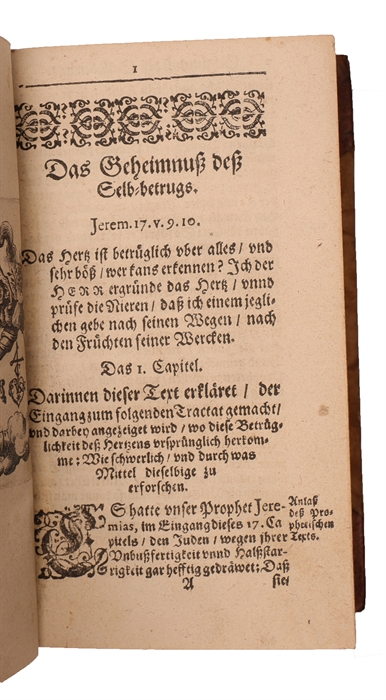 1
Das Geheimnuß deß
Selb-betrugs.
Jerem. 17. v. 9. 10.
Das Hertz ist betrüglich vber alles / vnd
sehr böß / wer kans erkennen? Jch der
HERR ergründe das Hertz / vnnd
prüfe die Nieren / daß ich einem jegli-
chen gebe nach seinen Wegen / nach
den Früchten seiner Wercken.
Das 1. Capitel.
Darinnen dieser Text erkläret / der
Eingang zum folgenden Tractat gemacht /
vnd darbey angezeiget wird / wo diese Betrüg-
lichkeit deß Hertzens vrsprünglich herkom-
me: Wie schwerlich / vnd durch was
Mittel dieselbige zu
erforschen.
ES hatte vnser Prophet Jere-
mias, im Eingang dieses 17. Ca
pitels / den Juden / wegen jhrer
Vnbußfertigkeit vnnd Halßstar-
rigkeit gar hefftig gedräwet; Daß
Anlaß
deß pro-
phetischen
Texts.
A
sie /